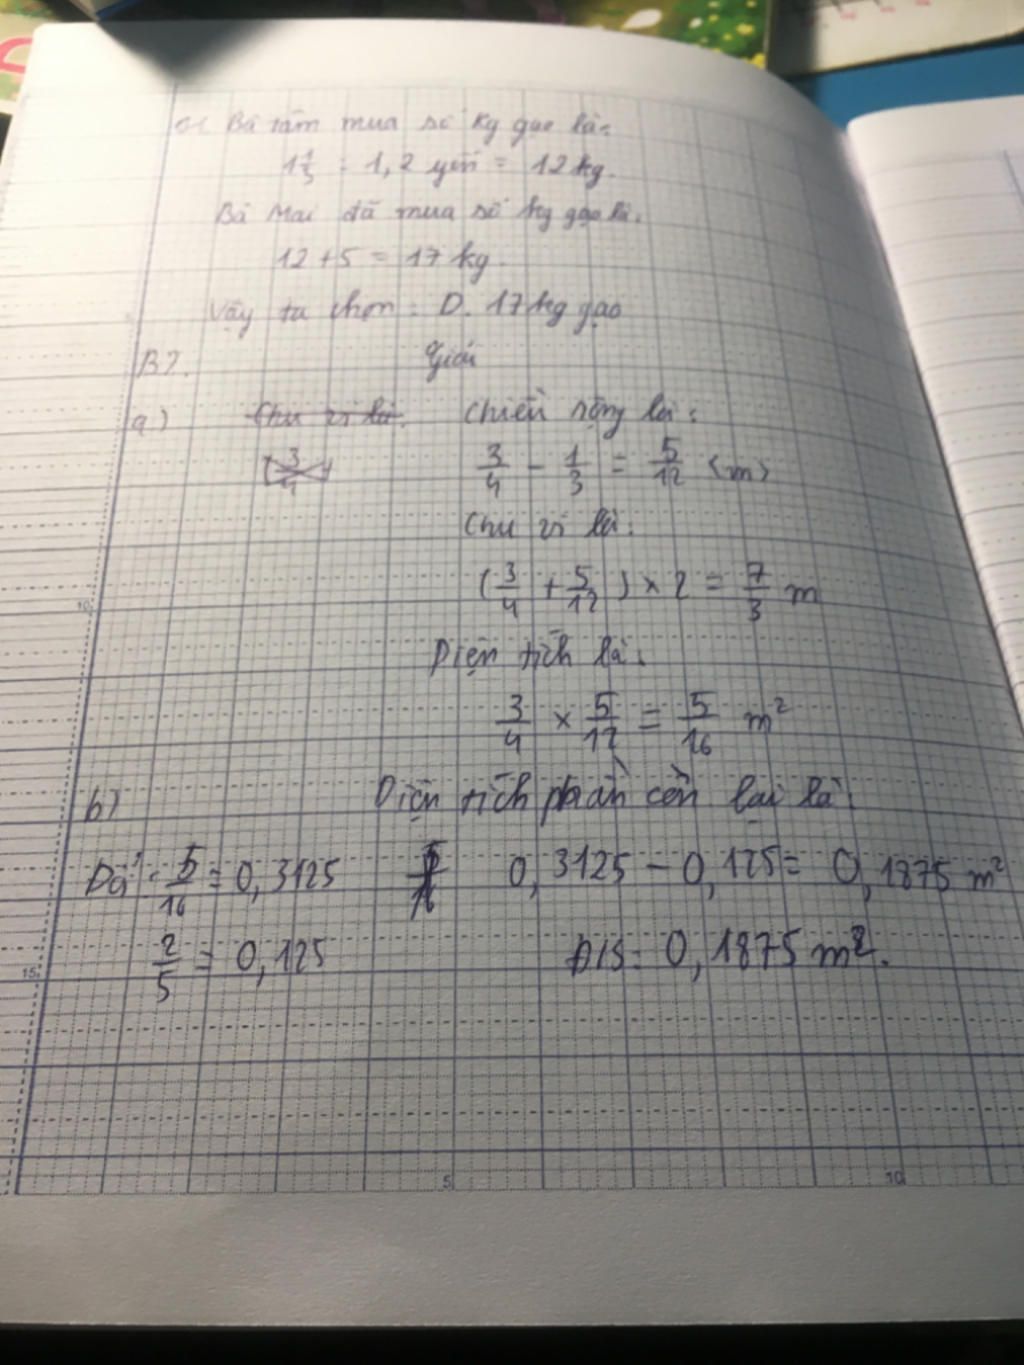 Bà Tâm mua số kg gạo là:
1 1/5 = 1,2 yến = 12 kg.
Bà Mai đã mua số kg gạo là.
12 + 5 = 17 kg.
Vậy ta chọn: D. 17 kg gạo
B7. Giải
a) Chu vi là. Chiều rộng là:
3/4 3/4 - 1/3 = 5/12 (m)
Chu vi là:
(3/4 + 5/12) × 2 = 7/3 m
Diện tích là.
3/4 × 5/12 = 5/16 m²
b) Diện tích phần còn lại là:
Đổi: 5/16 = 0,3125 0,3125 - 0,125 = 0,1875 m²
2/5 = 0,125 Đ/S: 0,1875 m².
10
15
5
10